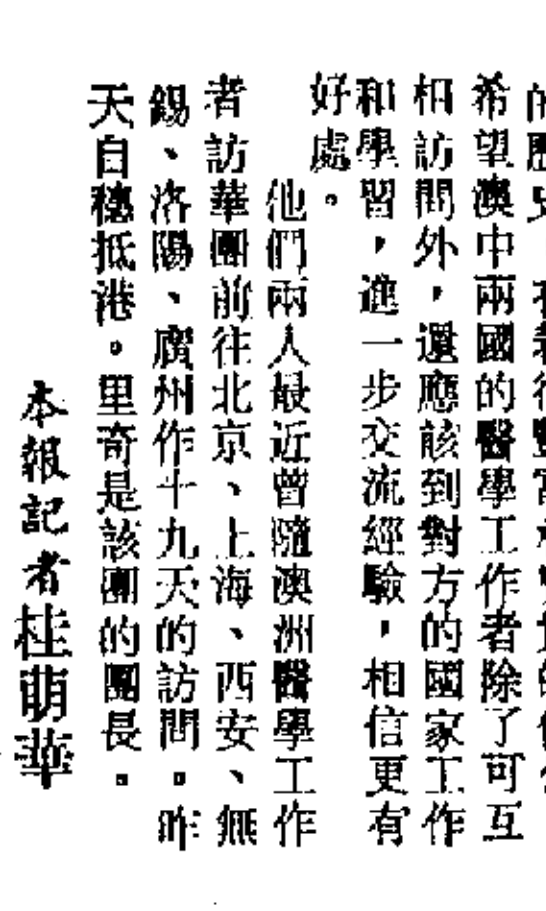 希望澳中兩國的醫學工作者除了可互
相訪問外，還應該到對方的國家工作
和學習，進一步交流經驗，相信更有
好處。
他們兩人最近曾隨澳洲醫學工作
者訪華團前往北京、上海、西安、無
錫、洛陽、廣州作十九天的訪問。昨
天自穗抵港。里奇是該團的團長。
本報記者桂萌華